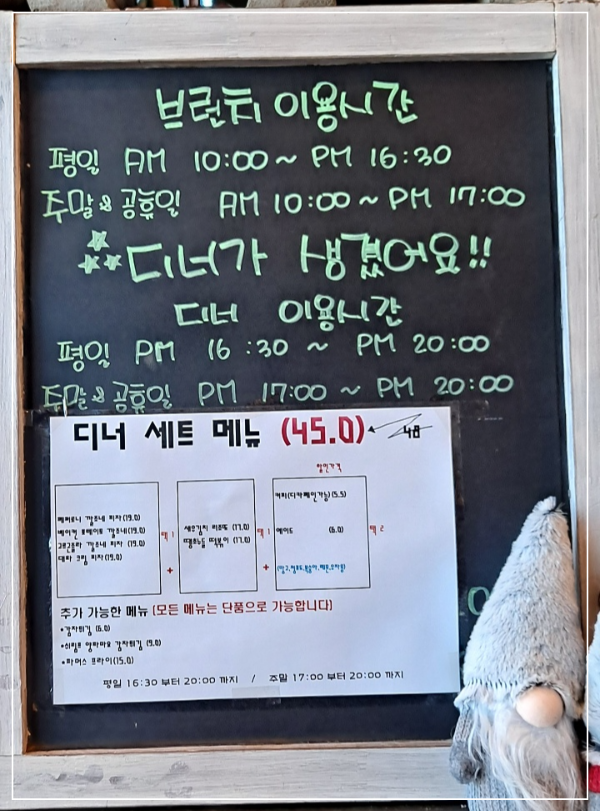 브런치 이용시간
평일 AM 10:00 ~ PM 16:30
주말 & 공휴일 AM 10:00 ~ PM 17:00
디너가 생겼어요!!
디너 이용시간
평일 PM 16:30 ~ PM 20:00
주말 & 공휴일 PM 17:00 ~ PM 20:00
디너 세트 메뉴 (45.0) 48
할인가격
페퍼로니 깔조네 피자 (19.0)
베이컨 포테이토 깔조네 (19.0)
고르곤졸라 깔조네 피자 (19.0)
대파 크림 피자 (19.0)
택 1
+
새우김치 리조또 (17.0)
떡볶이 (17.0)
택 1
+
커피(디카페인가능) (5.5)
에이드 (6.0)
택 2
추가 가능한 메뉴 (모든 메뉴는 단품으로 가능합니다)
•감자튀김 (6.0)
감자튀김 (9.0)
•파머스 프라이 (15.0)
평일 16:30 부터 20:00 까지 / 주말 17:00 부터 20:00 까지